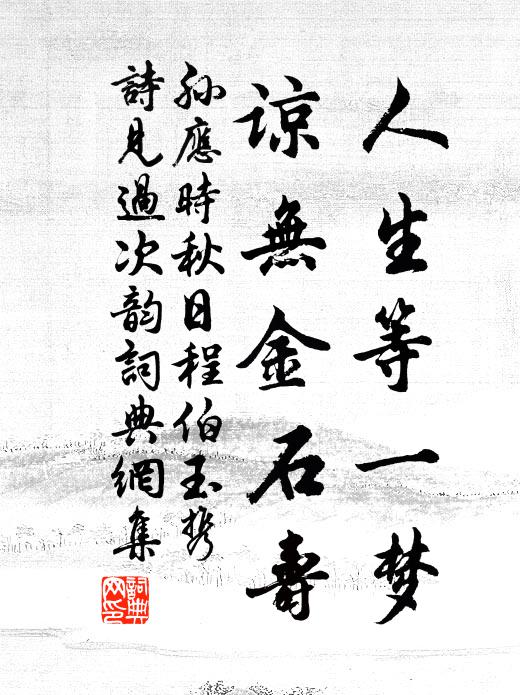 人生等一梦
谅無金石壽
孙應時秋日程伯玉携
詩見過次韵詞典網集
詞典网印